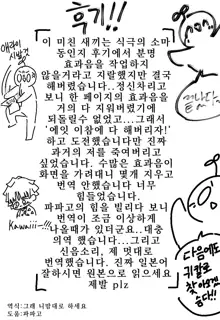 후기!!
이 미친 새끼는 식극의 소마
동인지 후기에서 분명
효과음을 작업하지
않을거라고 지랄했지만 결국
해버렸습니다..정신차리고
보니 한 페이지의 효과음을
거의 다 지워버렸기에
되돌릴수 없었고...그래서
'에잇 이참에 다 해버리자!'
하고 도전했습니다만 진짜
과거의 저를 죽여버리고
싶었습니다. 수많은 효과음이
화면을 가려대니 몇개 지우고
번역 안했습니다 너무
힘들었습니다.
파파고의 힘을 빌리다 보니
번역이 조금 이상하게
나올때가 있더군요..대충
의역 했습니다...그리고
신음소리, 제 멋대로
번역했습니다. 진짜 일본어
잘하시면 원본으로 읽으세요
제발 plz
Kawaii~!!!
끝났다..
다음에도
귀칼로
찾아오겠
습니다!!
역식:그래 니맘대로 하세요
도움:파파고